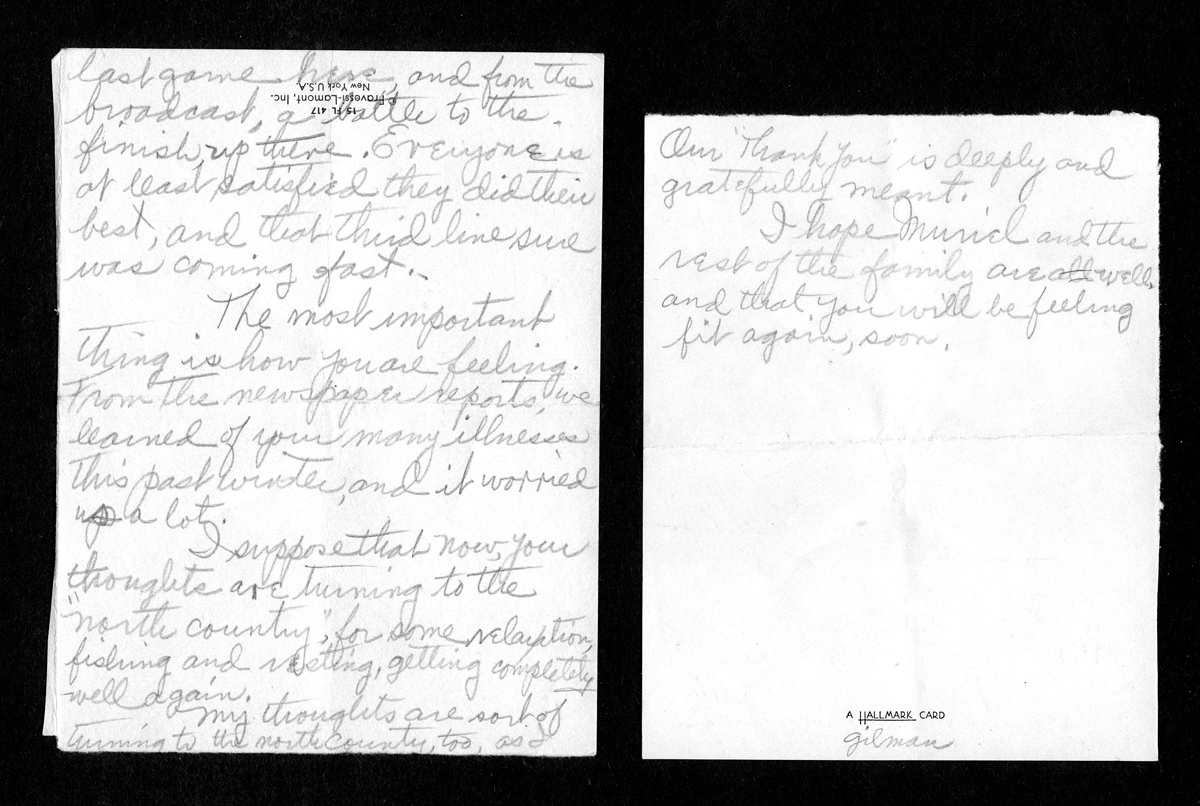 last game here, and from the
broadcast, a battle to the
finish, up there. Everyone is
at least satisfied they did their
best, and that third line sure
was coming fast.
The most important
thing is how you are feeling.
From the newspaper reports, we
learned of your many illnesses
this past winter, and it worried
us a lot.
I suppose that now, your
thoughts are turning to the
"north country", for some relaxation,
fishing and resting, getting completely
well again.
My thoughts are sort of
turning to the north country, too, as I
15 FL 417
© Fravessi-Lamont, Inc.
New York U.S.A.
Our "Thank You" is deeply and
gratefully meant.
I hope Muriel and the
rest of the family are all well,
and that you will be feeling
fit again, soon.
A HALLMARK CARD
gilman